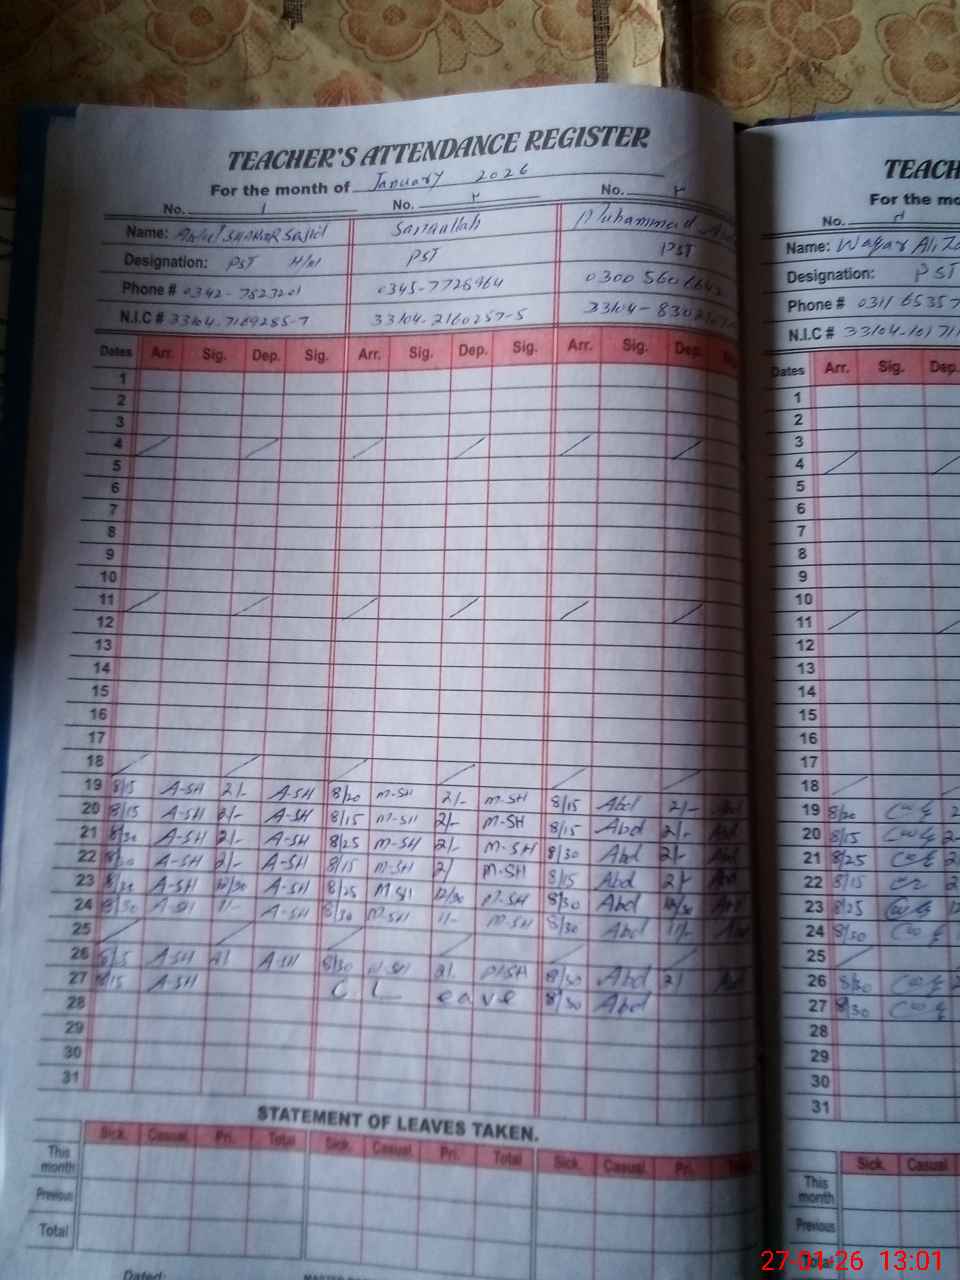 TEACHER'S ATTENDANCE REGISTER
For the month of January 2026
No. 1 No. ۲ No. ۳
Name: Sajid Sanaullah Muhammad
Designation: PST H/M PST PST
Phone # 0342-7823201 0345-7728964 0300 560
N.I.C # 33104-7169285-7 33104-2160257-5 33104-830
Dates Arr. Sig. Dep. Sig. Arr. Sig. Dep. Sig. Arr. Sig. Dep.
1
2
3
4
5
6
7
8
9
10
11
12
13
14
15
16
17
18
19 8/15 A-SH 2/- A-SH 8/20 M-SH 2/- M-SH 8/15 Abd 2/- Abd
20 8/15 A-SH 2/- A-SH 8/15 M-SH 2/- M-SH 8/15 Abd 2/- Abd
21 8/30 A-SH 2/- A-SH 8/25 M-SH 2/- M-SH 8/30 Abd 2/- Abd
22 8/20 A-SH 2/- A-SH 8/15 M-SH 2/ M-SH 8/15 Abd 2/- Abd
23 A-SH 12/30 A-SH 8/25 M-SH 12/30 M-SH 8/30 Abd 12/30 Abd
24 8/30 A-SH 11/- A-SH 8/30 M-SH 11/- M-SH 8/30 Abd 11/- Abd
25
26 8/15 A-SH 2/ A-SH 8/30 M-SH 2/ M-SH 8/30 Abd 2/ Abd
27 8/15 A-SH C. Leave 8/30 Abd
28
29
30
31
STATEMENT OF LEAVES TAKEN.
Sick. Casual. Pri. Total Sick. Casual. Pri. Total Sick. Casual. Pri.
This month
Previous
Total
Dated:
TEACH
For the mo
No. ۴
Name: Waqar Ali
Designation: PST
Phone # 0311 6535
N.I.C # 33104-10171
Dates Arr. Sig. Dep.
1
2
3
4
5
6
7
8
9
10
11
12
13
14
15
16
17
18
19 8/20
20 8/15
21 8/25
22 8/15
23 8/25
24 8/30
25
26 8/30
27 8/30
28
29
30
31
Sick. Casual
This month
Previous
Total
27-01-26 13:01